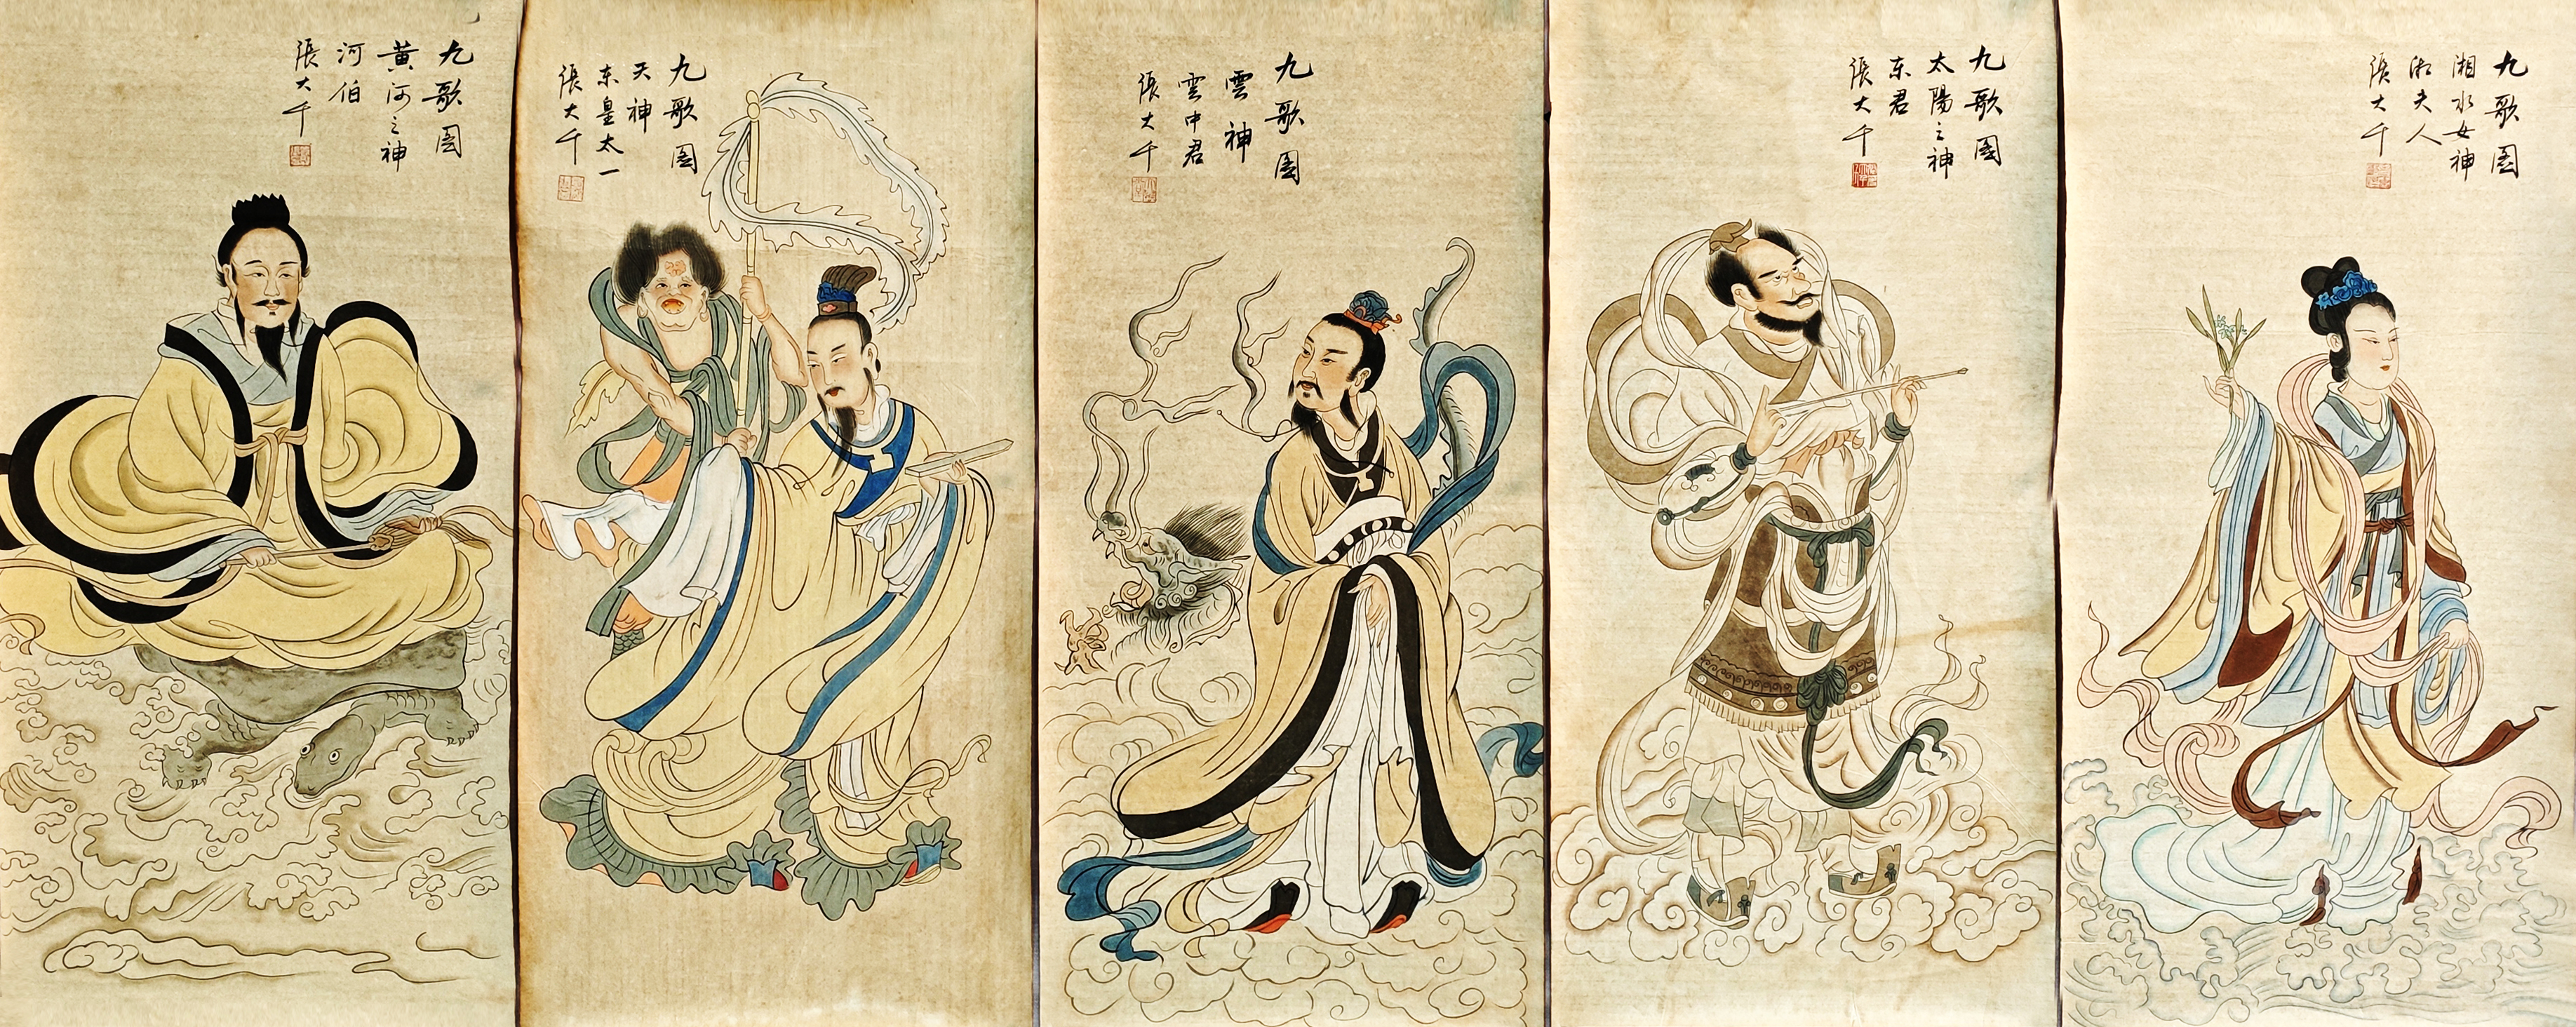 九歌图
黄河之神
河伯
張大千
九歌图
天神
东皇太一
張大千
九歌图
雲神
雲中君
張大千
九歌图
太陽之神
东君
張大千
九歌图
湘水女神
湘夫人
張大千